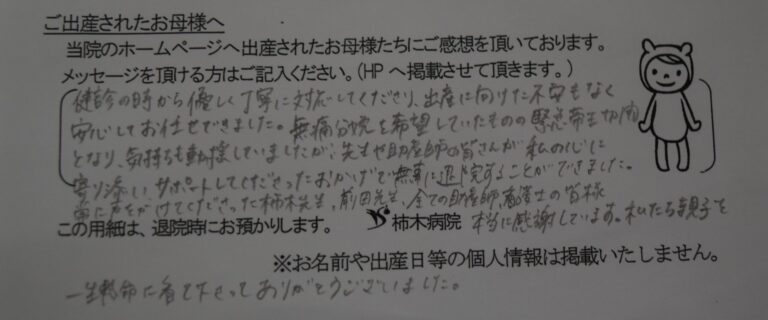 ご出産されたお母様へ
当院のホームページへ出産されたお母様たちにご感想を頂いております。
メッセージを頂ける方はご記入ください。(HPへ掲載させて頂きます。)
健診の時から優しく丁寧に対応してくださり、出産に向けた不安もなく
安心してお任せできました。無痛分娩を希望していたものの緊急帝王切開
となり、気持ちも動揺していましたが、先生や助産師の皆さんが私の心に
寄り添い、サポートしてくださったおかげで無事に退院することができました。
常に声をかけてくださった柿木先生、前田先生、全ての助産師、看護士の皆様
本当に感謝しています。私たち親子を
この用紙は、退院時にお預かりします。
柿木病院
※お名前や出産日等の個人情報は掲載いたしません。
一生懸命に
下さってありがとうございました。